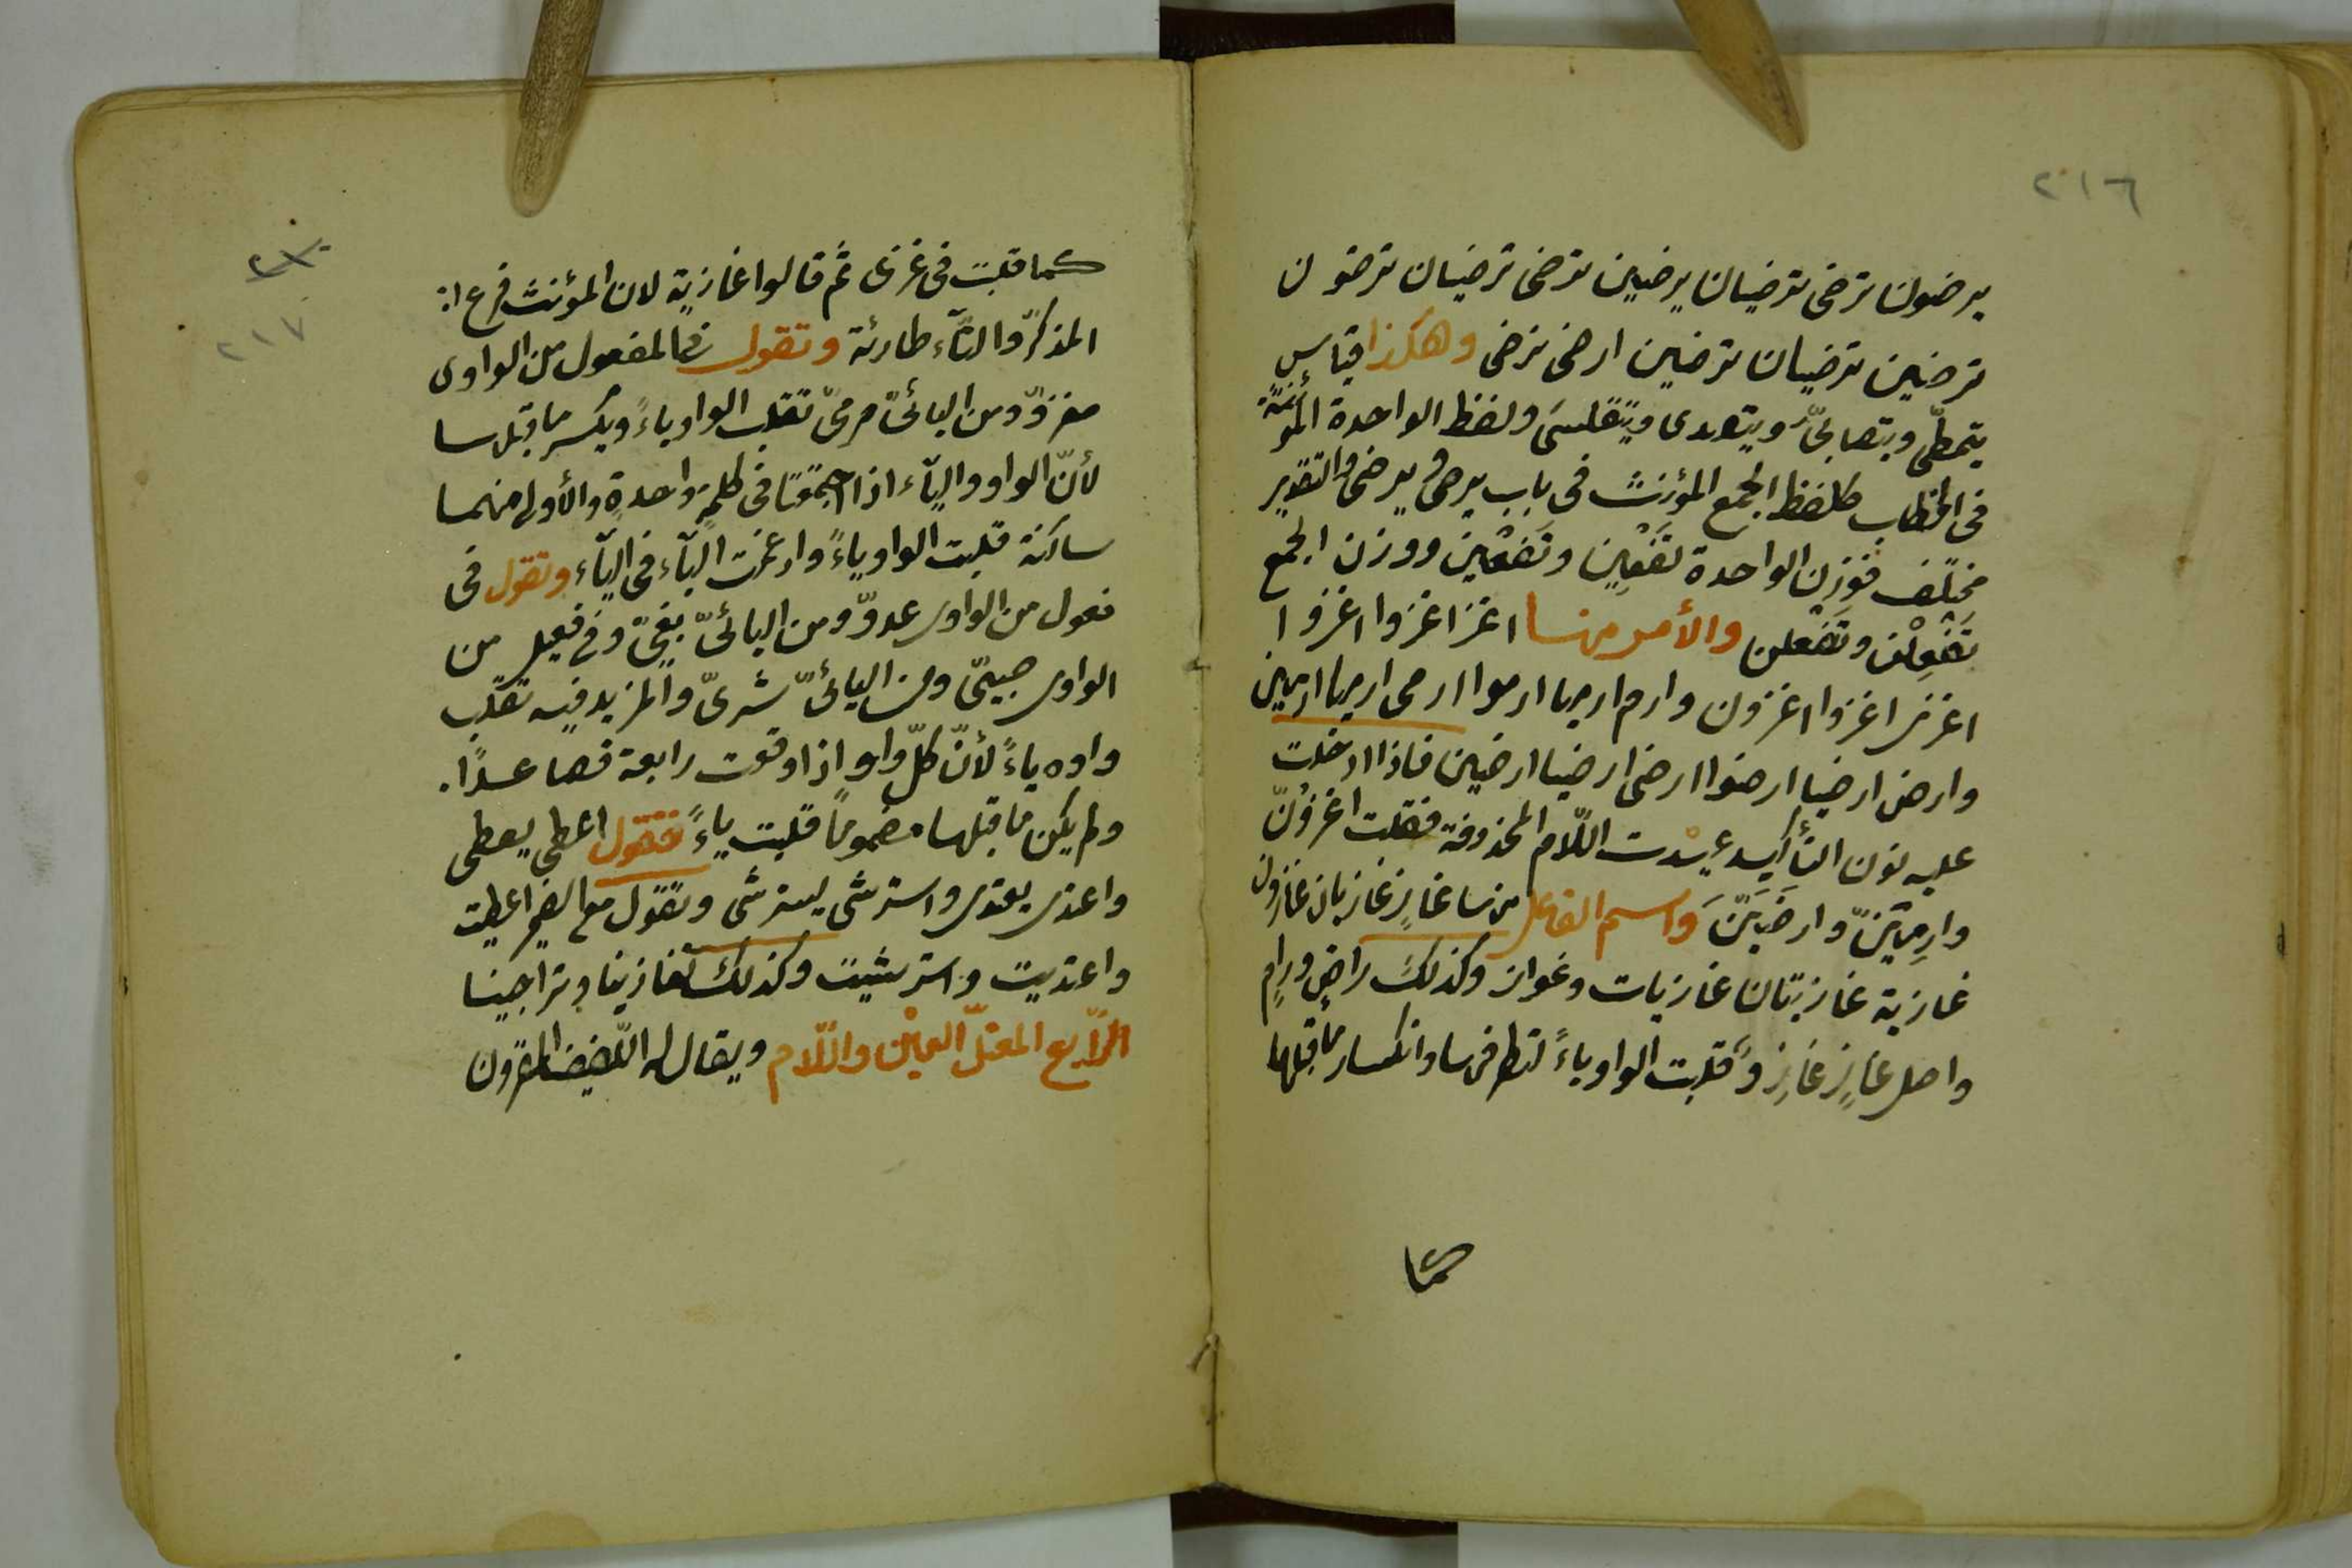 ٢١٦
يرضون ترضى ترضيان يرضين ترضى ترضيان ترضون
ترضين ترضيان ترضين ارضى نرضى وهكذا قياس
يتمطّى ويتصابىّ ويتعدى ويتقلسى ولفظ الواحدة المؤنثة
فى الخطاب كلفظ الجمع المؤنث فى باب يرمى ويرضى والتقدير
مختلف فوزن الواحدة تفعين وتفعين ووزن الجمع
تَفْعِلْن وتَفْعَلن والأمر منها اغز اغزوا اغزوا
اغزى اغزوا اغزون وارم ارميا ارموا ارمى ارميا ارمين
وارض ارضيا ارضوا ارضى ارضيا ارضين فاذا ادخلت
عليه نون التأكيد عيدت اللّام المحذوفة فقلت اغزونّ
وارمِيَنّ وارضَيَنّ واسم الفاعل منها غازٍ غازيان غازون
غازية غازيتان غازيات وغواز وكذلك راضٍ ورامٍ
واصل غازٍ غازِوٌ قلبت الواو ياءً لتطرفها وانكسار ما قبلها
كما
٢١٧
كما قلبت فى غزى ثم قالوا غازية لان المؤنث فرع
المذكّر والتّاء طارئة وتقول فى المفعول من الواوى
مغزوّ ومن اليائىّ مرمىّ تقلب الواو ياءً ويكسر ما قبلها
لأنّ الواو والياء اذا اجتمعتا فى كلمةٍ واحدةٍ والأولى منهما
ساكنة قلبت الواو ياءً وادغمت الياء فى الياء وتقول فى
فعول من الواوى عدوّ ومن اليائىّ بغىّ وفى فعيل من
الواوى صبىّ ومن اليائىّ شرىّ والمزيد فيه تقلب
واوه ياءً لأنّ كلّ واوٍ اذا وقعت رابعة فصاعدًا.
ولم يكن ما قبلها مضمومًا قلبت ياءً فتقول اعطى يعطى
واعتدى يعتدى واسترشى يسترشى وتقول مع الضمير اعطيت
واعتديت واسترشيت وكذلك تغازينا وتراجينا
الرّابع المعتلّ العيْن واللّام ويقال له اللّفيف المقرون